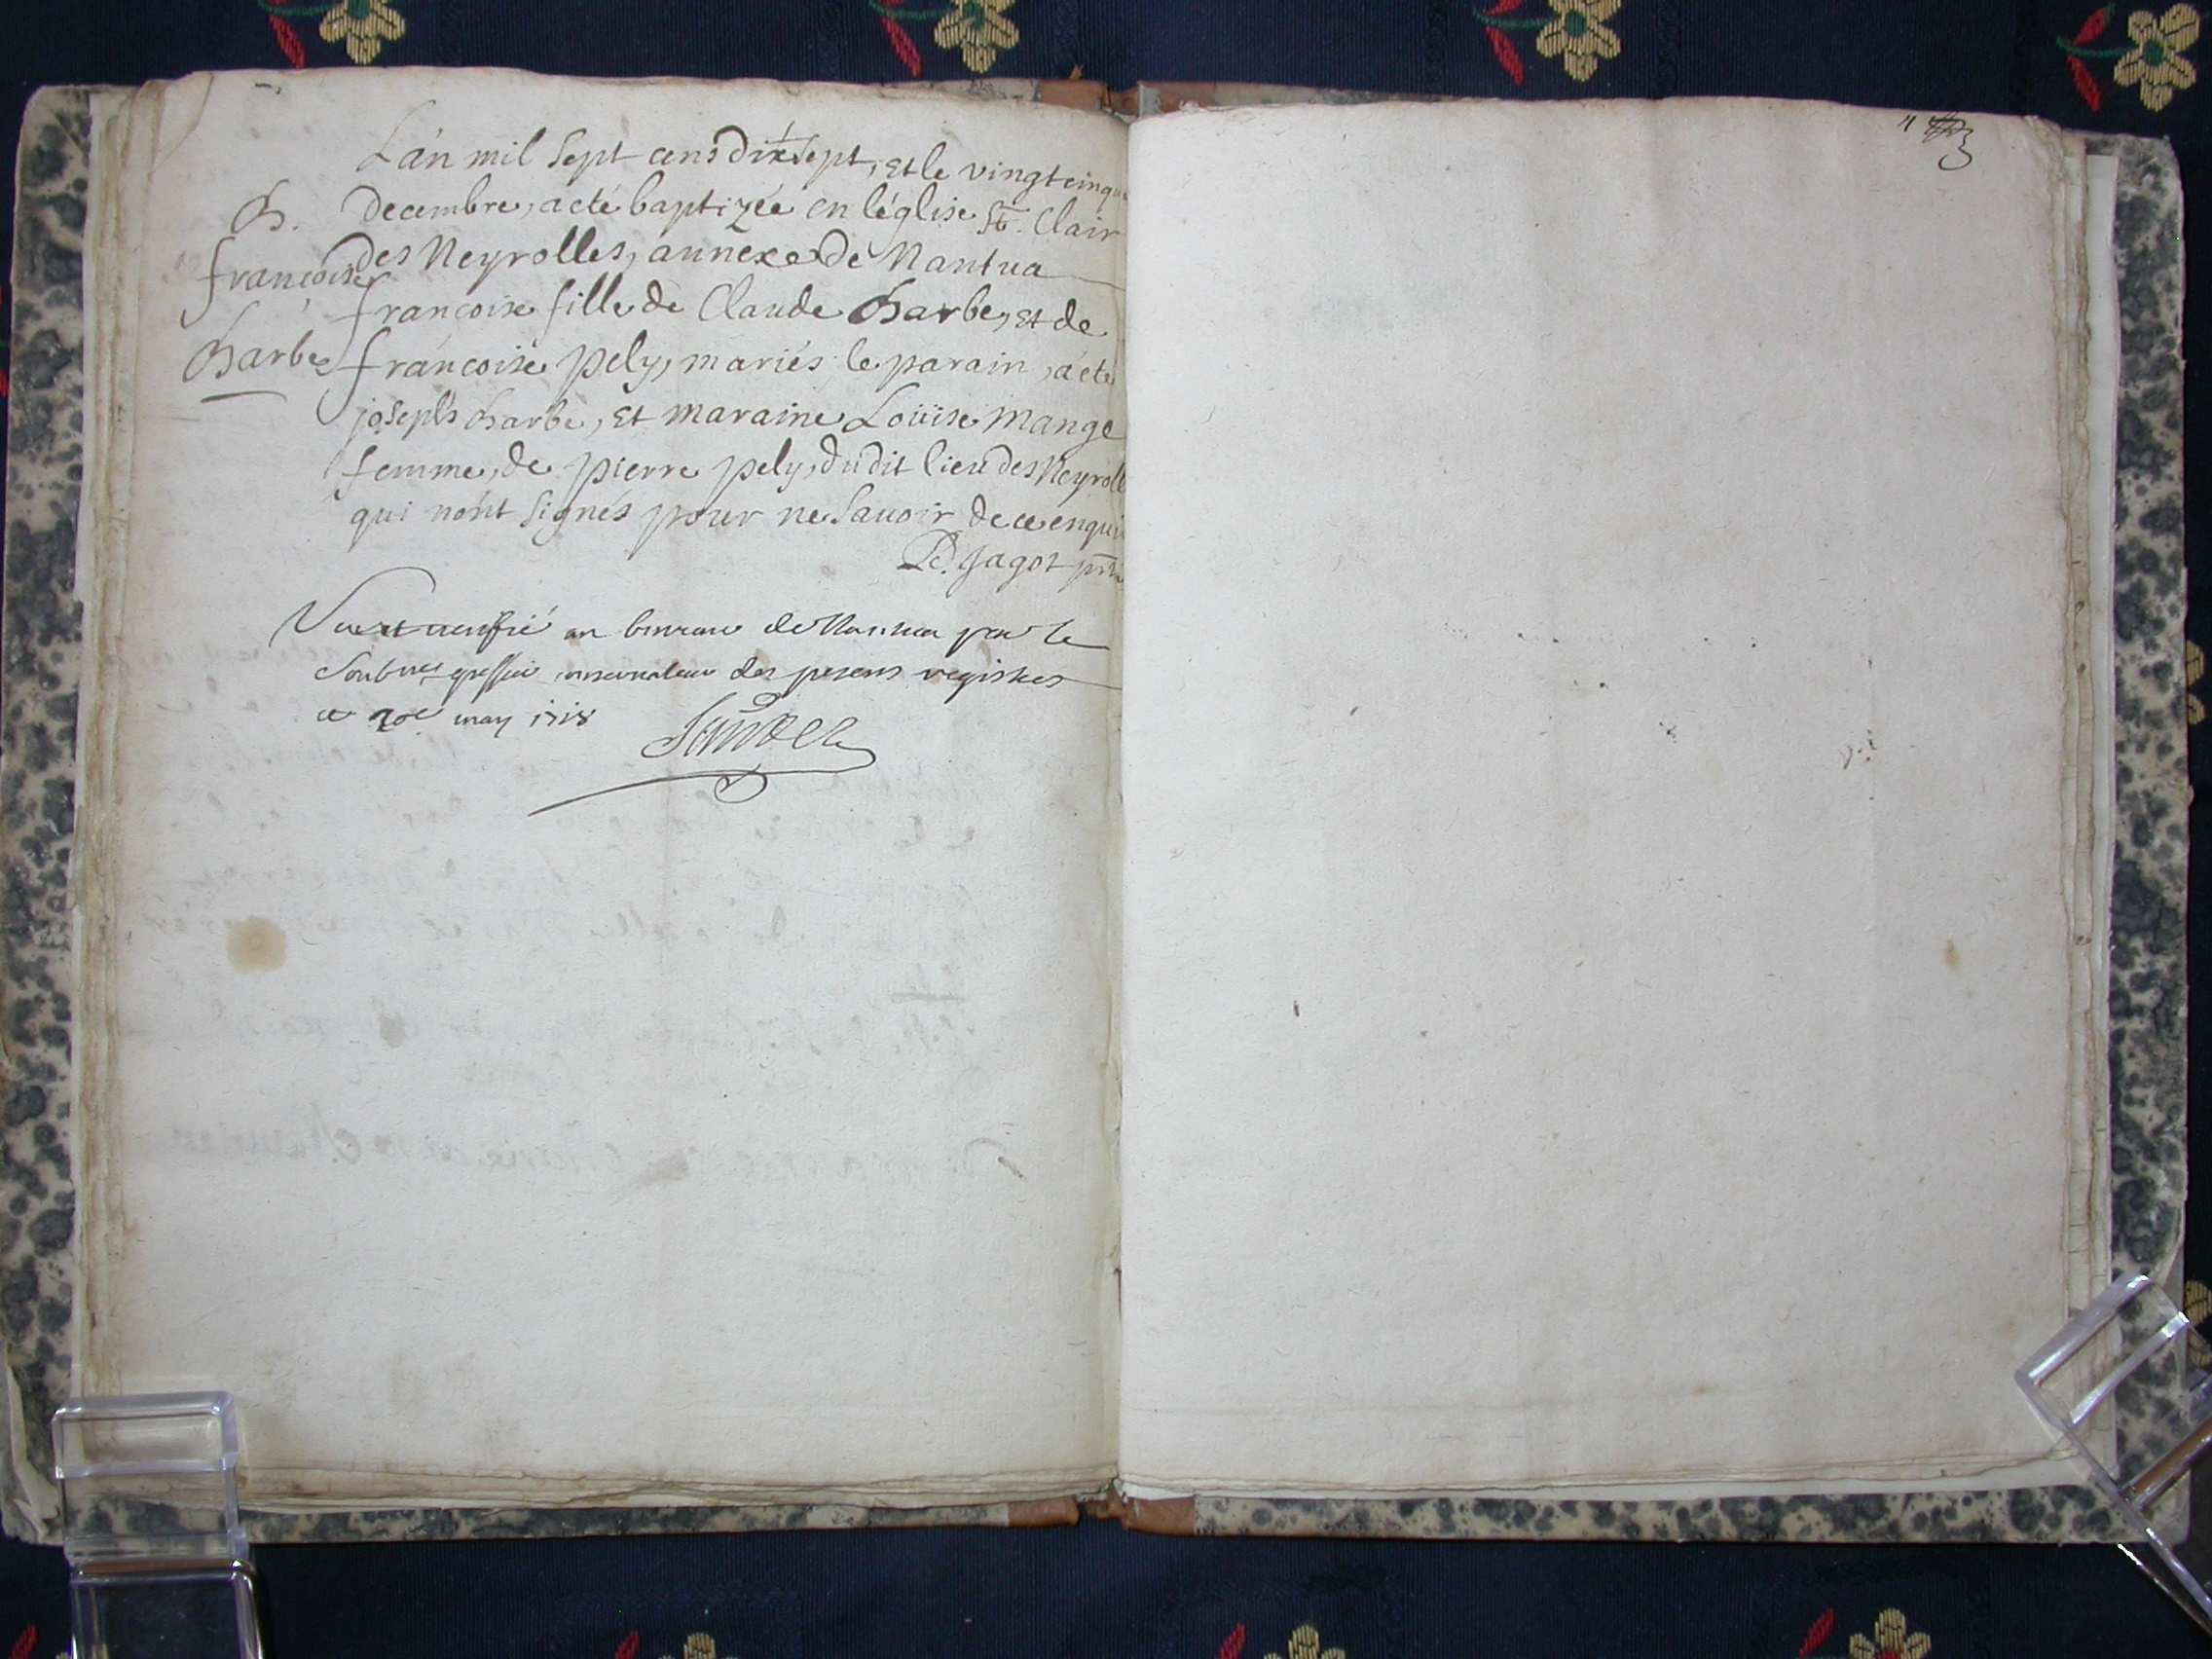 L'án mil Sept cens dix Sept, et le vingtcinq
B. Decembre, a eté baptizée en l'église St. Clair
françoise des Neyrolles, annexe de Nantua
francoise fille de Claude Barbe, et de
Barbe francoise pely, mariés le parain, a eté
joseph Barbe, et maraine Loüise Mange
femme, de pierre pely, du dit lieu des Neyroll
qui n'ont signés pour ne Sauoir de ce enqui
Jagot
Vu et verifié au bureau de Nantua par le
Soubné greffier conservateur des presens registres
ce 20e may 1718